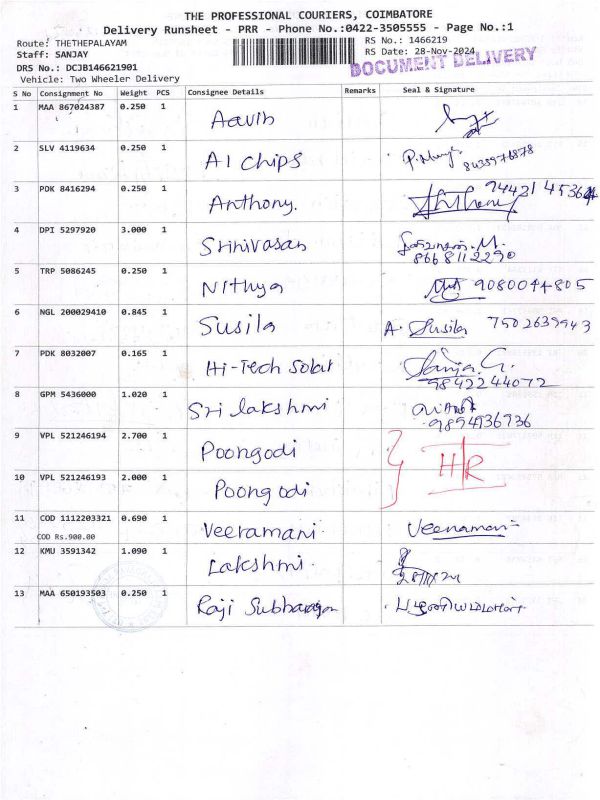 THE PROFESSIONAL COURIERS, COIMBATORE
Delivery Runsheet - PRR - Phone No.:0422-3505555 - Page No.:1
Route: THETHEPALAYAM
RS No.: 1466219
Staff: SANJAY
RS Date: 28-Nov-2024
DOCUMENT DELIVERY
DRS No.: DCJB146621901
Vehicle: Two Wheeler Delivery
S No Consignment No Weight PCS Consignee Details Remarks Seal & Signature
1 MAA 867024387 0.250 1 Aavin
2 SLV 4119634 0.250 1 A1 chips 8438976878
3 PDK 8416294 0.250 1 Anthony.
4 DPI 5297920 3.000 1 Srinivasan
8668112290
5 TRP 5086245 0.250 1 Nithya 9080044805
6 NGL 200029410 0.845 1 Susila A. Susila 7502639943
7 PDK 8032007 0.165 1 Hi-Tech Solar
9842244072
8 GPM 5436000 1.020 1 Sri lakshmi
9894936736
9 VPL 521246194 2.700 1 Poongodi
H/R
10 VPL 521246193 2.000 1 Poongodi
11 COD 1112203321 0.690 1 Veeramani Veeramani
COD Rs.900.00
12 KMU 3591342 1.090 1 Lakshmi.
28/11/24
13 MAA 650193503 0.250 1 Raji